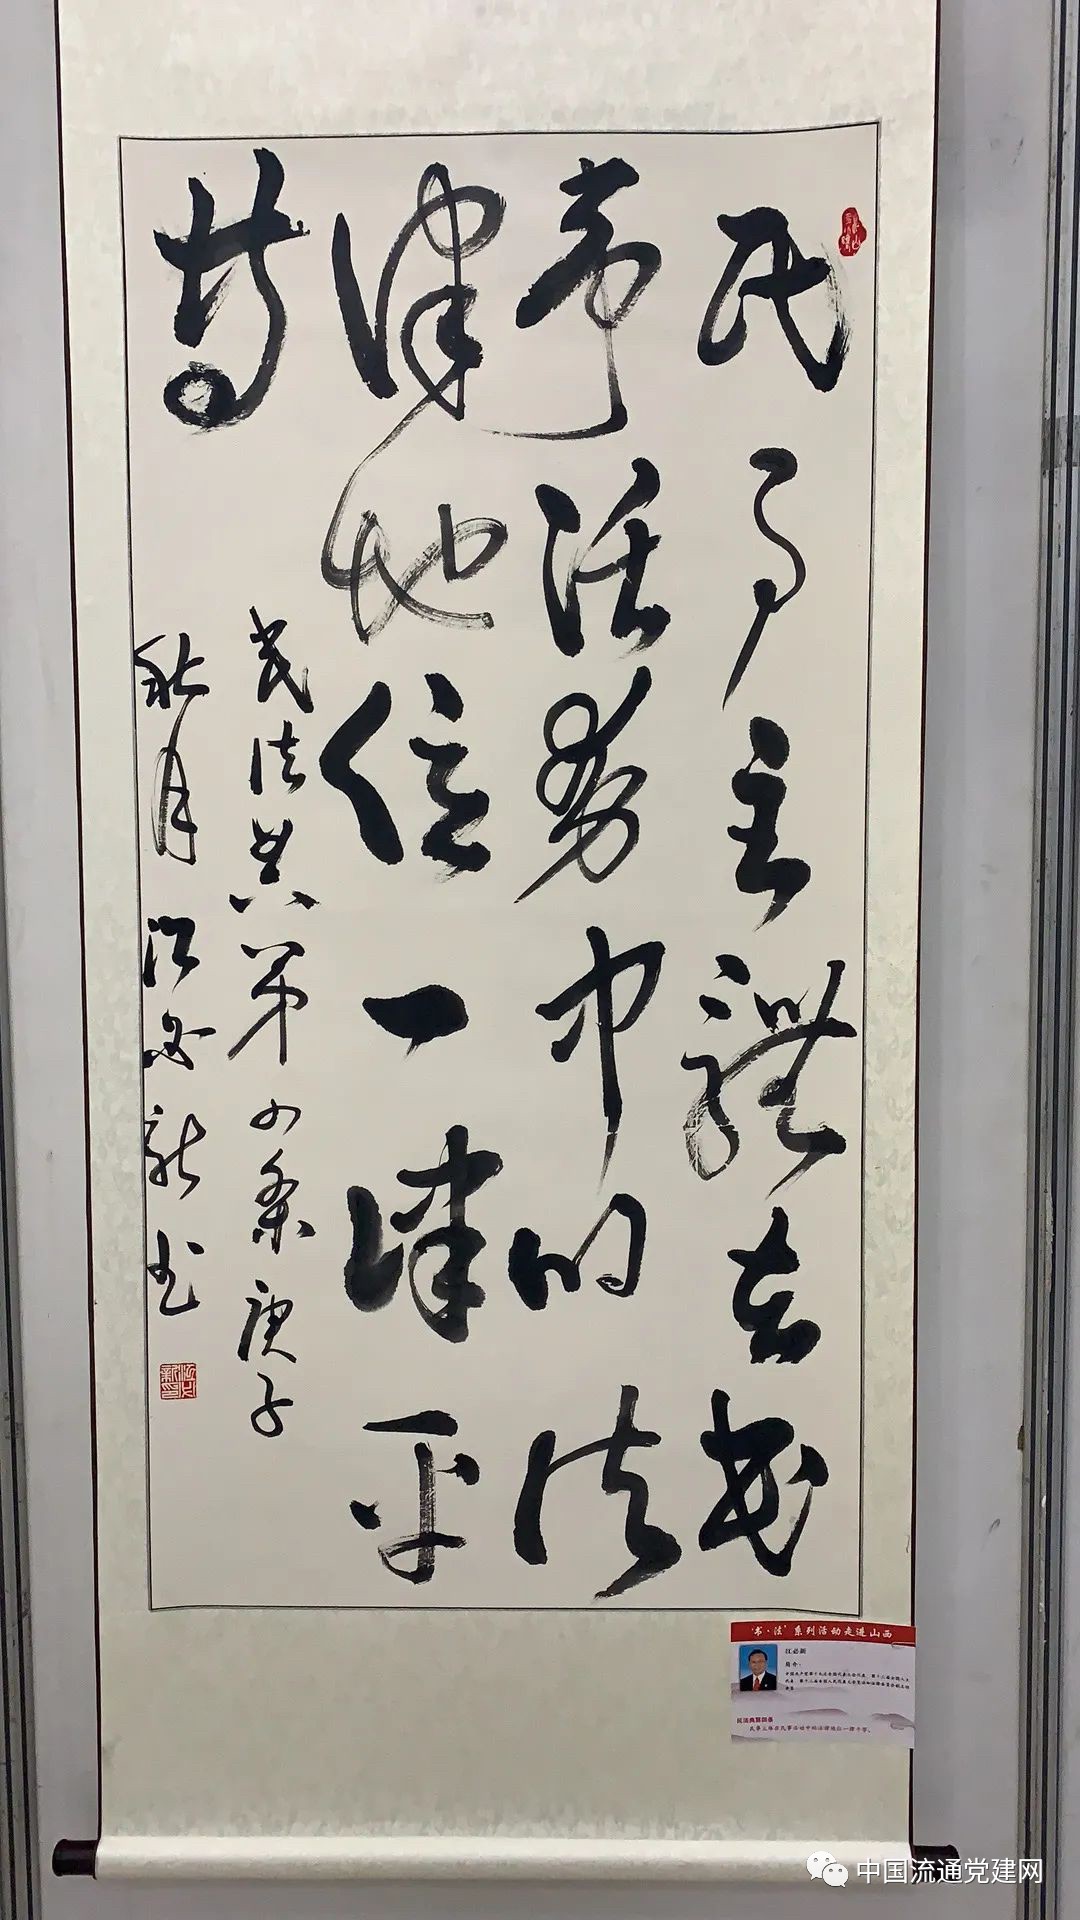 民事主體在民
事活動中的法
律地位一律平
等
民法典第四条庚子
秋月江必新书
‘书·法’系列活动走进山西
江必新
简介：
民法典第四条
民事主体在民事活动中的法律地位一律平等。
中国流通党建网